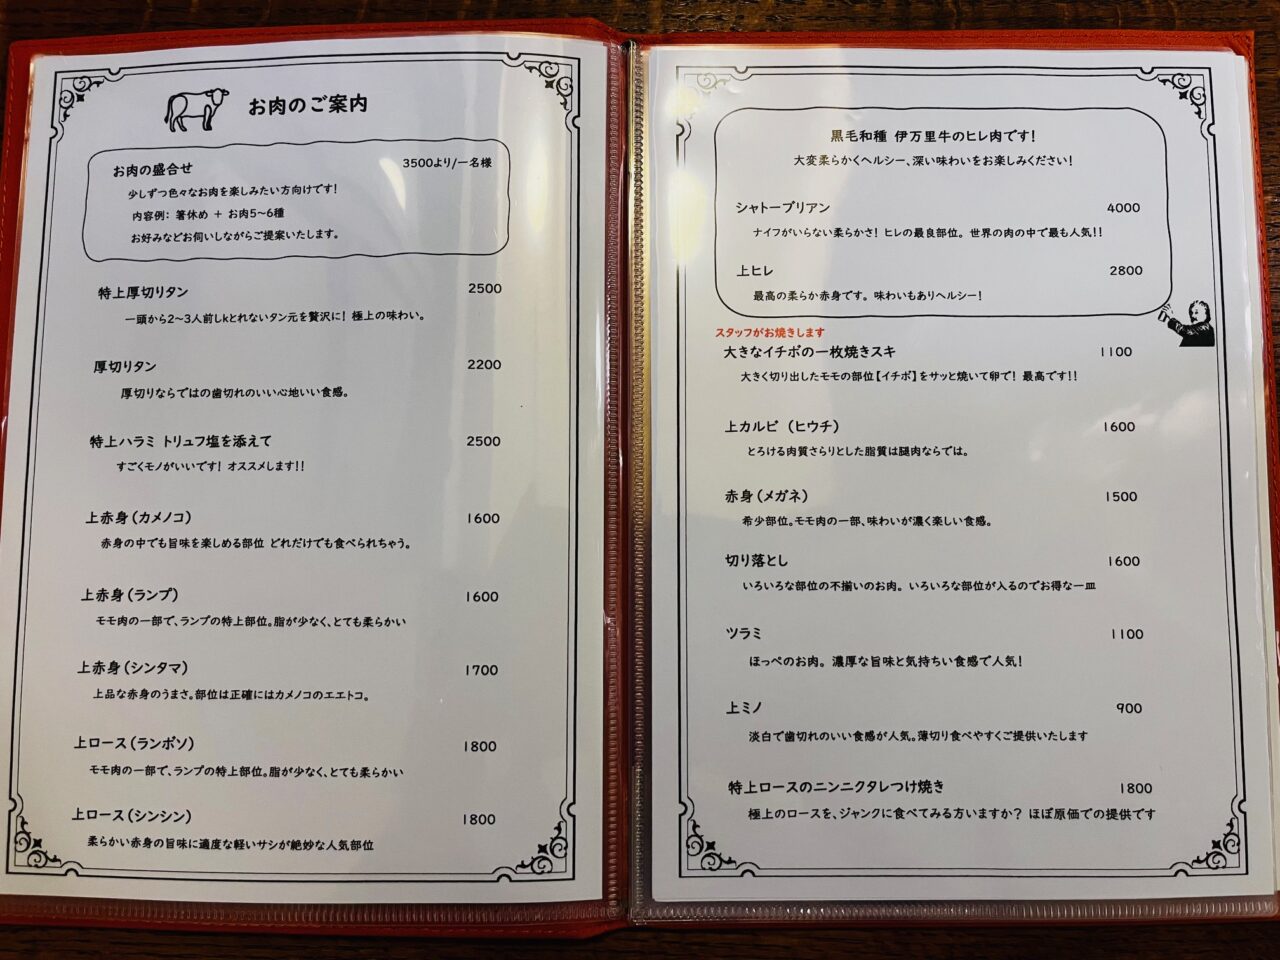 お肉のご案内
お肉の盛合せ 3500より/一名様
少しずつ色々なお肉を楽しみたい方向けです!
内容例: 箸休め + お肉5〜6種
お好みなどお伺いしながらご提案いたします。
特上厚切りタン 2500
一頭から2〜3人前しkとれないタン元を贅沢に! 極上の味わい。
厚切りタン 2200
厚切りならではの歯切れのいい心地いい食感。
特上ハラミ トリュフ塩を添えて 2500
すごくモノがいいです! オススメします!!
上赤身(カメノコ) 1600
赤身の中でも旨味を楽しめる部位 どれだけでも食べられちゃう。
上赤身(ランプ) 1600
モモ肉の一部で、ランプの特上部位。脂が少なく、とても柔らかい
上赤身(シンタマ) 1700
上品な赤身のうまさ。部位は正確にはカメノコのエエトコ。
上ロース(ランボソ) 1800
モモ肉の一部で、ランプの特上部位。脂が少なく、とても柔らかい
上ロース(シンシン) 1800
柔らかい赤身の旨味に適度な軽いサシが絶妙な人気部位
黒毛和種 伊万里牛のヒレ肉です!
大変柔らかくヘルシー、深い味わいをお楽しみください!
シャトーブリアン 4000
ナイフがいらない柔らかさ! ヒレの最良部位。世界の肉の中で最も人気!!
上ヒレ 2800
最高の柔らか赤身です。味わいもありヘルシー!
スタッフがお焼きします
大きなイチボの一枚焼きスキ 1100
大きく切り出したモモの部位【イチボ】をサッと焼いて卵で! 最高です!!
上カルビ (ヒウチ) 1600
とろける肉質さらりとした脂質は腿肉ならでは。
赤身(メガネ) 1500
希少部位。モモ肉の一部、味わいが濃く楽しい食感。
切り落とし 1600
いろいろな部位の不揃いのお肉。いろいろな部位が入るのでお得な一皿
ツラミ 1100
ほっぺのお肉。濃厚な旨味と気持ちい食感で人気!
上ミノ 900
淡白で歯切れのいい食感が人気。薄切り食べやすくご提供いたします
特上ロースのニンニクタレつけ焼き 1800
極上のロースを、ジャンクに食べてみる方いますか? ほぼ原価での提供です